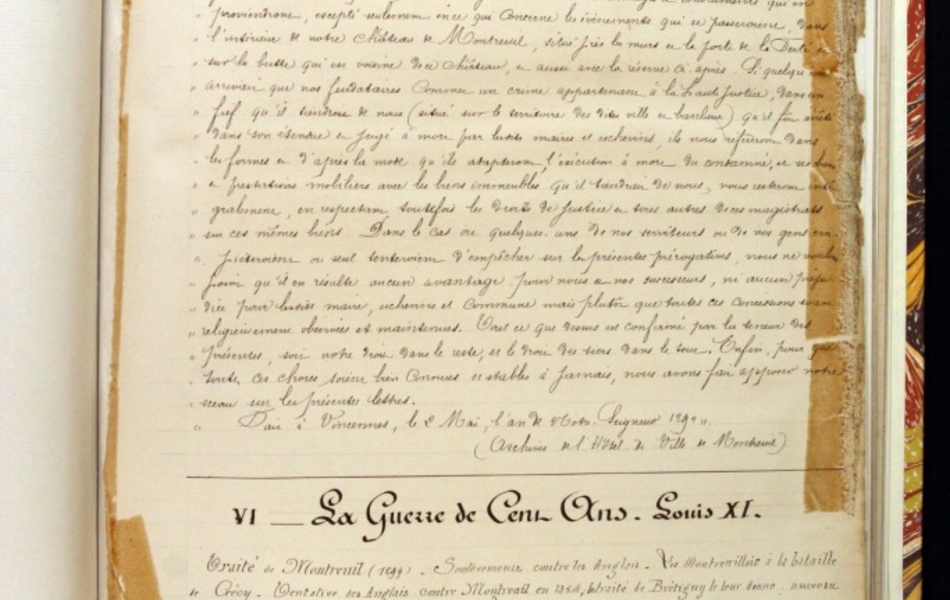 proviendront, excepté seulement en ce qui concerne les évènements qui se passeront, dans
" l'intérieur de notre château de Montreuil, situé près les murs et la porte de la
" sur la butte qui est voisine de ce château, et aussi avec la réserve ci après. Si quelqu'un
" arrivait que nos feudataires commis un crime appartenant à la haute justice, dans un
" fief qu'il tiendrait de nous (situé sur le territoire des dites ville et banlieue) qu'il fut arrêté
" dans son étendue et jugé à mort par lesdits maires et échevins, ils nous référeront dans
" les formes et d'après la mode qu'ils adopteront, l'exécution à mort du condamné, et ses biens
" et prestations mobiliers avec les biens immeubles qu'il tiendrait de nous, nous resteront inté
" gralement, en respectant toutefois les droits de justice et tous autres de ces magistrats
" sur ces mêmes biens. Dans le cas où quelques uns de nos serviteurs ou de nos gens en
" ou seul d'empêcher sur les présentes prérogatives, nous ne voulons
" point qu'il en résulte aucun avantage pour nous et nos successeurs, ni aucun préju
" dice pour lesdits maire, échevins et Commune mais plutôt que toutes ces concessions soient
" religieusement observées et maintenues. Tout ce que dessus est confirmé par la teneur des
" présentes, sauf notre droit dans le reste, et le droit des tiers dans le tout. Enfin, pour que
" toutes ces choses soient bien connues et stables à jamais, nous avons fait apposer notre
" sceau sur les présentes lettres.
" Dat à Vincennes, le 2 Mai, l'an de Notre Seigneur
(Archives de l'Hôtel de Ville de Montreuil)
VI — La Guerre de Cent Ans. Louis XI.
Traité de Montreuil (1299). Soulèvement contre les Anglais. Les Montreuillois à la bataille
de Crécy. Tentative des Anglais contre Montreuil en 1354, le traité de Brétigny le leur donne.